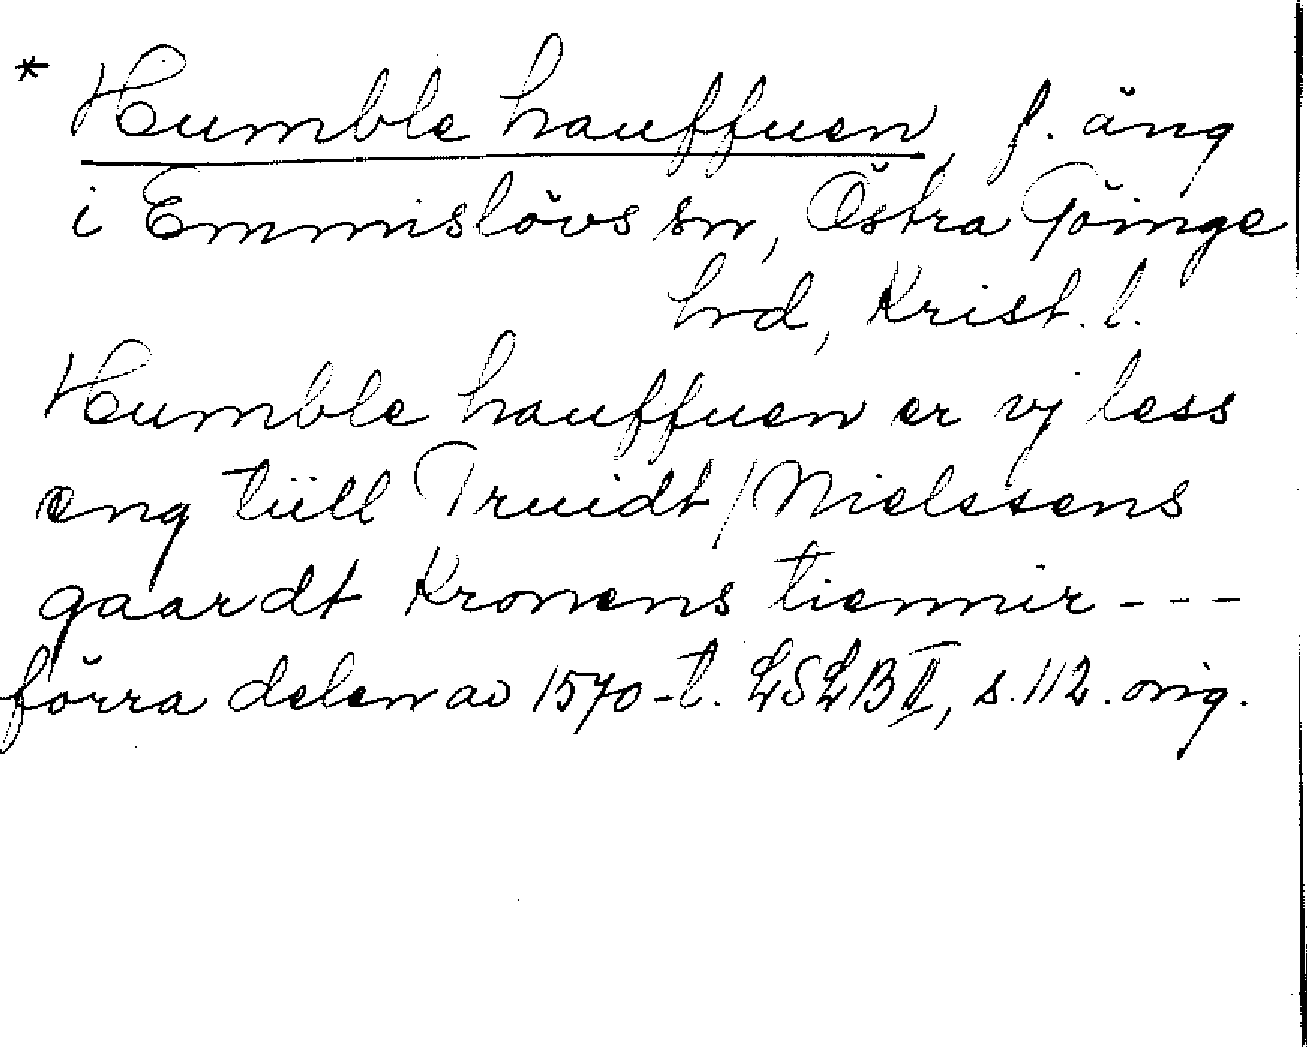 * Humble hauffuen, f. äng
i Emmislövs sn, Östra Göinge
hrd, Krist. l.
Humble hauffuen er vj less
eng tiill Truidt / Nielssens
gaardt Kronens tiennir - - -
förra delen av 1570-t. LSLB II, s. 112. orig.